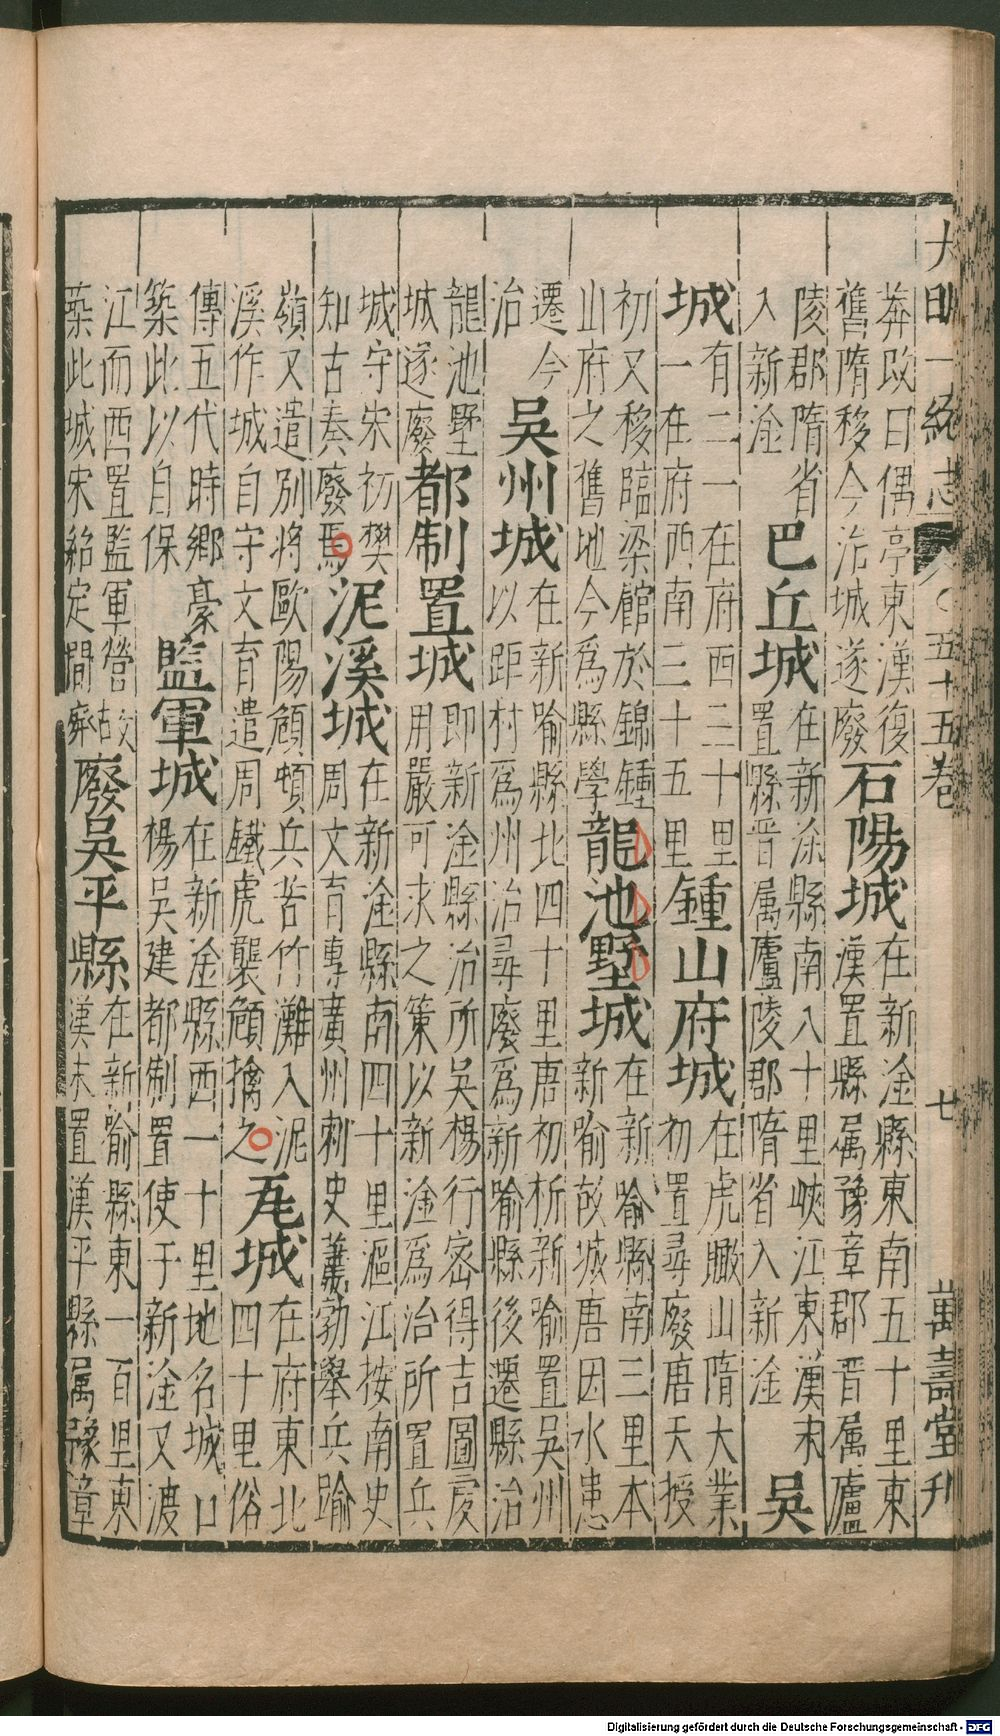 大明一統志 五十五卷 七 萬壽堂刋
莾改曰偶亭東漢復
舊隋移今治城遂廢
石陽城
在新淦縣東南五十里東
漢置縣属豫章郡晋属廬
陵郡隋省
入新淦
巴丘城
在新淦縣南八十里峽江東漢末
置縣晋属廬陵郡隋省入新淦
吳
城
有二一在府西三十里
一在府西南三十五里
鍾山府城
在虎瞰山隋大業
初置尋廢唐天授
初又移臨梁館於錦鍾
山府之舊地今爲縣學
龍池墅城
在新喻縣南三里本
新喻故城唐因水患
遷今
治
吳州城
在新喻縣北四十里唐初析新喻置吳州
以距村爲州治尋廢爲新喻縣後遷縣治
龍池墅
城遂廢
都制置城
即新淦縣治所吳楊行密得吉圖虔
用嚴可求之策以新淦爲治所置兵
城守宋初樊
知古奏廢焉
泥溪城
在新淦縣南四十里漚江按南史
周文育專廣州刺史蕭勃舉兵踰
嶺又遣別將歐陽頠頓兵苦竹灘入泥
溪作城自守文育遣周鐵虎襲頠擒之
瓦城
在府東北
四十里俗
傳五代時鄉豪
築此以自保
監軍城
在新淦縣西一十里地名城口
楊吳建都制置使于新淦又渡
江而西置監軍營故
築此城宋紹定間廢
廢吳平縣
在新喻縣東一百里東
漢末置漢平縣属豫章
Digitalisierung gefördert durch die Deutsche Forschungsgemeinschaft - DFG